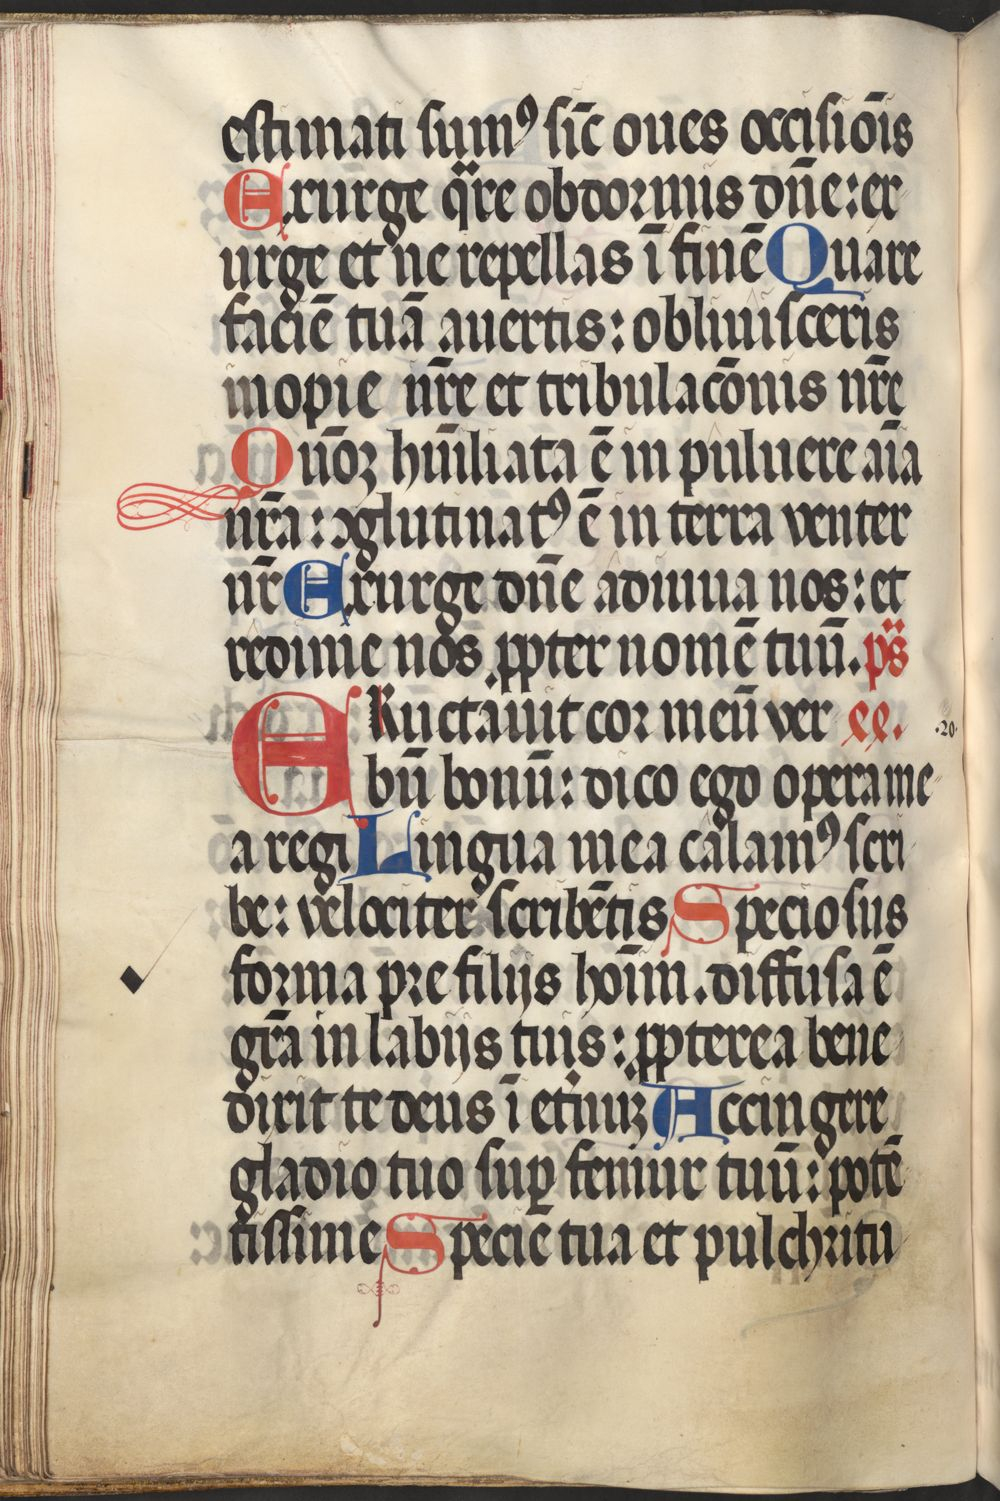 estimati sumꝰ sic̄ oues occisiōis
Exurge qͣre obdormis dn̄e: ex
urge et ne repellas ī finē Quare
faciē tuā auertis: obliuisceris
inopie nr̄e et tribulacōnis nr̄e
Qūoꝫ humiliata ē in puluere aīa
nr̄a: ꝯglutinatꝰ ē in terra venter
nr̄ Exurge dn̄e adiuua nos: et
redime nos ꝓpter nomē tuū. ps̄
ERuctauit cor meū ver ee. ·20·
bū bonū: dico ego opera me
a regi Lingua mea calamꝰ scri
be: velociter scribētis Speciosus
forma pre filijs hoīm. diffusa ē
gr̄a in labijs tuis: ꝓpterea bene
dixit te deus ī eternuꝫ Accingere
gladio tuo suꝑ femur tuū: potē
tissime Specie tua et pulchritu